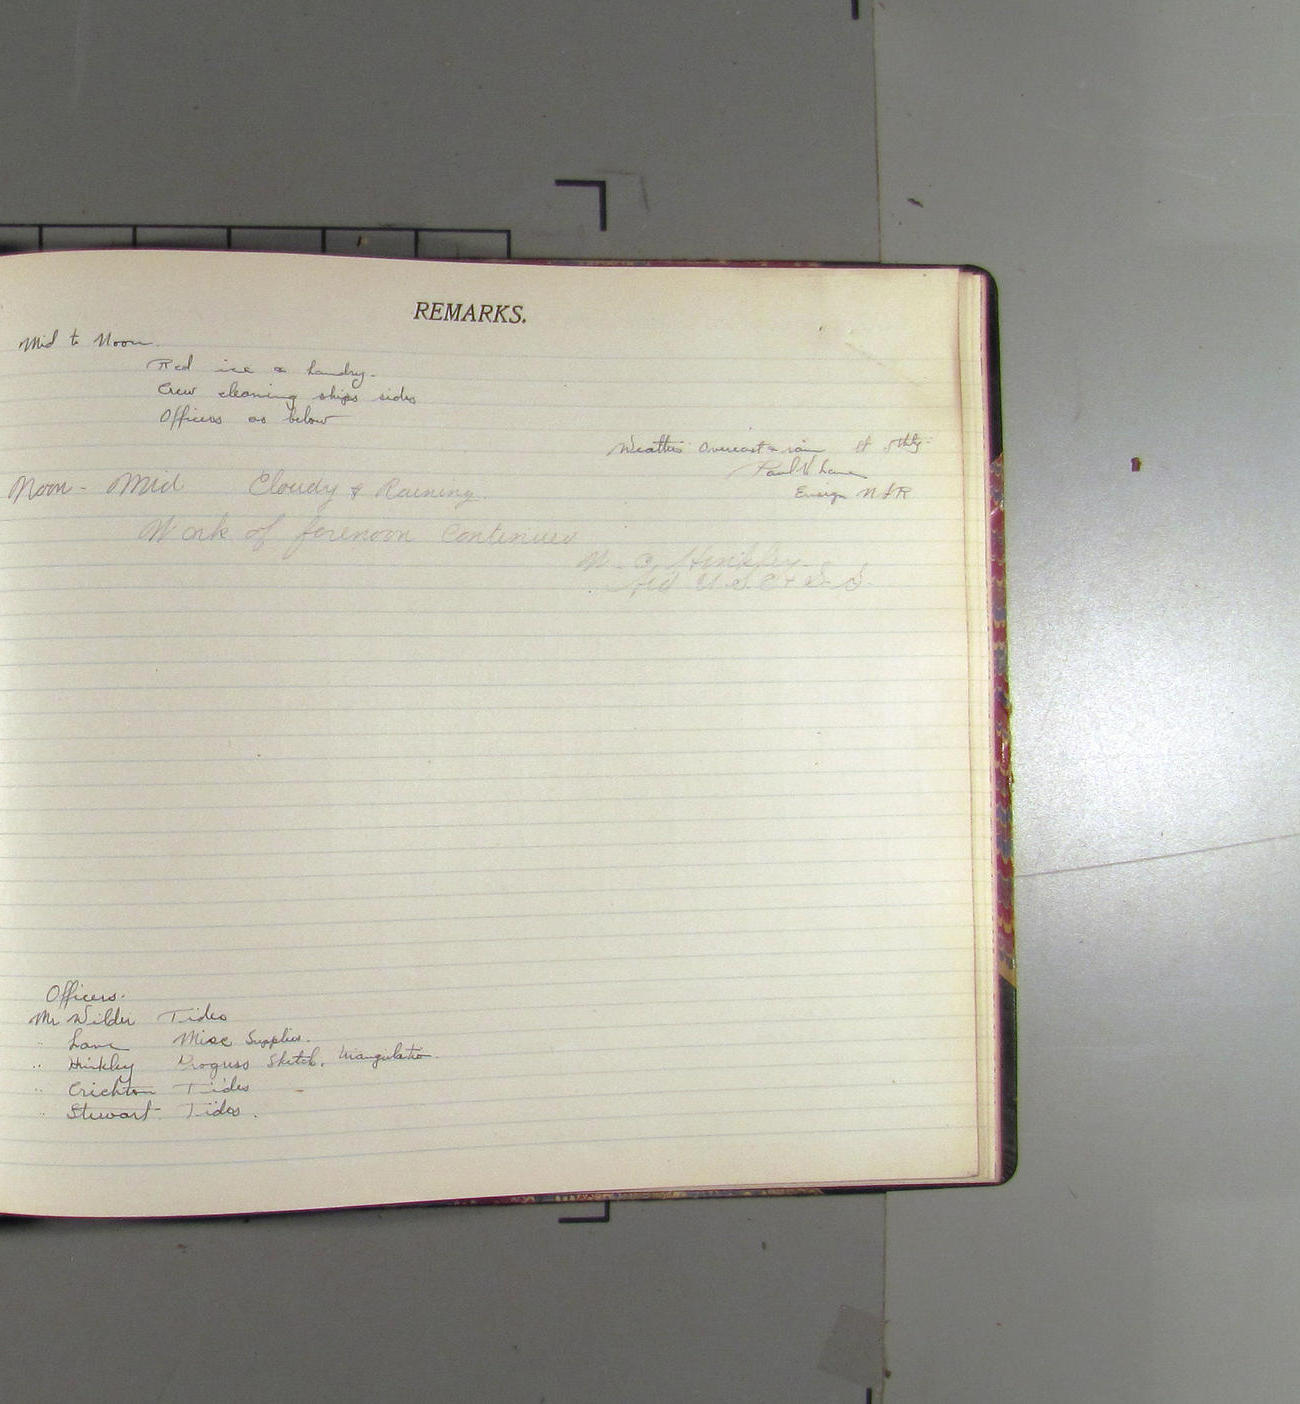 REMARKS.
Mid to Noon.
Recd ice & laundry.
Crew cleaning ships sides
Officers as below
Weather Overcast & rain
Paul V Lane
Ensign NRF
Noon - Mid Cloudy & Raining.
Work of forenoon continued
W. C. Hinkley.
Aid U.S.C. & G.S.
Officers.
Mr Wilder Tides
" Lane Misc Supplies.
" Hinkley Progress Sketch. Triangulation
" Crichton Tides
" Stewart Tides.